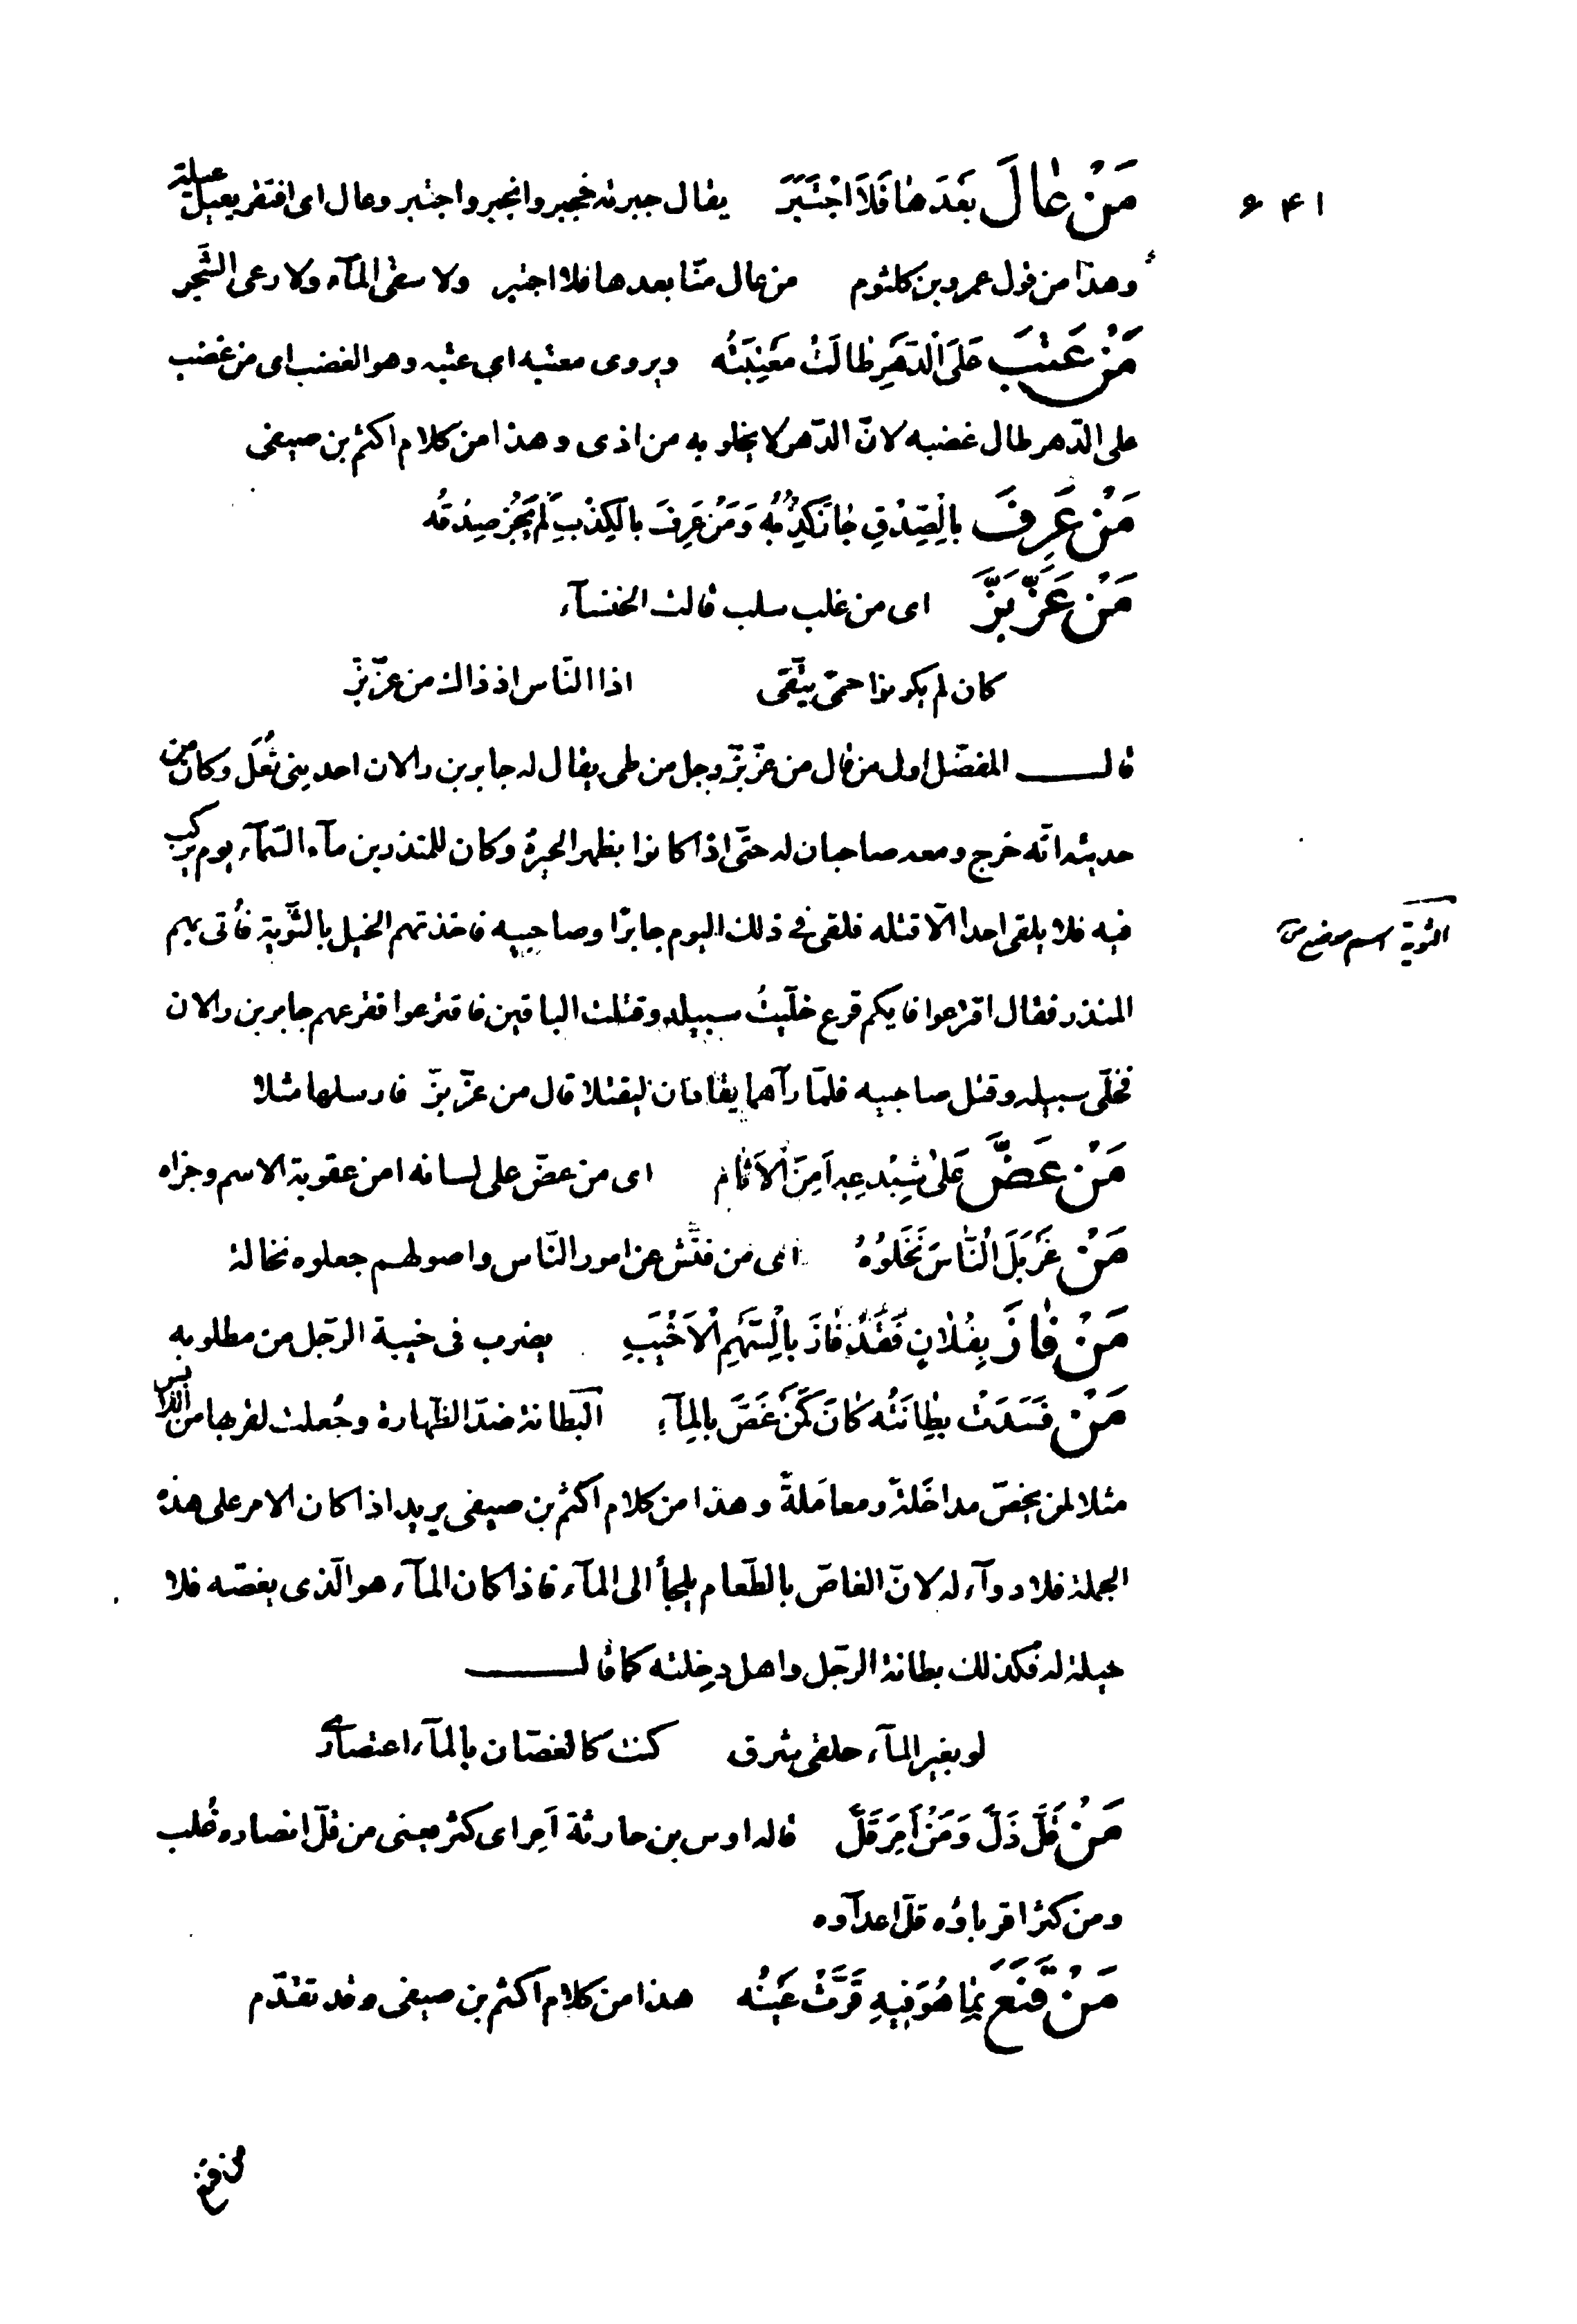 ٦٤١
مَنْ عَالَ بَعْدَهَا فَلَا اجْتَبَرَ يقال جبرته فجبر وانجبر واجتبر وعال اى افتقر يعيل عيلة
وهذا من قول عمرو بن كلثوم من عال منّا بعدها فلا اجتبر ولا سقى المآء ولا رعى الشّجر
مَنْ عَتَبَ عَلَى الدَّهْرِ طَالَتْ مَعْتِبَتُه ويروى معتبه اى عتبه وهو الغضب اى من غضب
على الدّهر طال غضبه لانّ الدّهر لا يخلو به من اذى وهذا من كلام اكثم بن صيفى
مَنْ عَرِفَ بِالصِّدْقِ جَازَ كِذْبُهُ وَمَنْ عَرِفَ بِالْكِذْبِ لَمْ يَجُزْ صِدْقُه
مَنْ عَزَّ بَزَّ اى من غلب سلب قالت الخنسآء
كان لم يكونوا حمىً يتّقى اذا النّاس اذ ذاك من عزّ بزّ
قال المفضّل اول من قال من عزّ بزّ رجل من طى يقال له جابر بن رالان احد بنى ثُعَل وكان من
حديثه انّه خرج ومعه صاحبان له حتّى اذا كانوا بظهر الحيرة وكان للمنذر بن مآء السّمآء يوم يركب
فيه فلا يلقى احدا الّا قتله فلقى فى ذلك اليوم جابرًا وصاحبيه فاخذتهم الخيل بالثّوِيّة فأتى بهم
الثوية اسم موضع
المنذر فقال اقترعوا فايكم قرع خلّيتُ سبيله وقتلت الباقين فاقترعوا فقرعهم جابر بن رالان
فخلّى سبيله وقتل صاحبيه فلمّا رآهما يقادان ليقتلا قال من عزّ بزّ فارسلها مثلا
مَنْ عَضَّ عَلَى شِبْدِعِهِ اَمِنَ الْاَثَامَ اى من عضّ على لسانه امن عقوبة الاسم وجزاه
مَنْ غَرْبَلَ النَّاسَ نَخَلُوهُ اى من فتّش عن امور النّاس واصولهم جعلوه نخالة
مَنْ فَازَ بِفُلَانٍ فَقَدْ فَازَ بِالسَّهْمِ الْاَخْيَبِ يضرب فى خيبة الرّجل من مطلوبه
مَنْ فَسَدَتْ بِطَانَتُه كَانَ كَمَنْ غَصَّ بِالمآءِ البطانة ضدّ الظّهارة وجُعلت لقربها من اللابس
مثلا لمن يخصّ مداخَلةً ومعامَلةً وهذا من كلام اكثم بن صيفى يريد اذا كان الامر على هذه
الجملة فلا دوآء له لانّ الغاصّ بالطّعام يلجأ الى المآء فاذا كان المآء هو الّذى يغصّه فلا
حيلة له فكذلك بطانة الرّجل واهل دِخلته كما قال
لو بغير المآء حلقى شرق كنت كالغصّان بالمآء اعتصارى
مَنْ قَلَّ ذَلَّ وَمَنْ أَمِرَ قَلَّ قاله اوس بن حارثة اَمِر اى كثر يعنى من قلّ انصاره غُلب
ومن كثر اقرباؤه قلّ اعدآوه
مَنْ قَنَعَ بِمَا هُوَ فِيهِ قَرَّتْ عَيْنُه هذا من كلام اكثم بن صيفى وقد تقدّم
من قنع